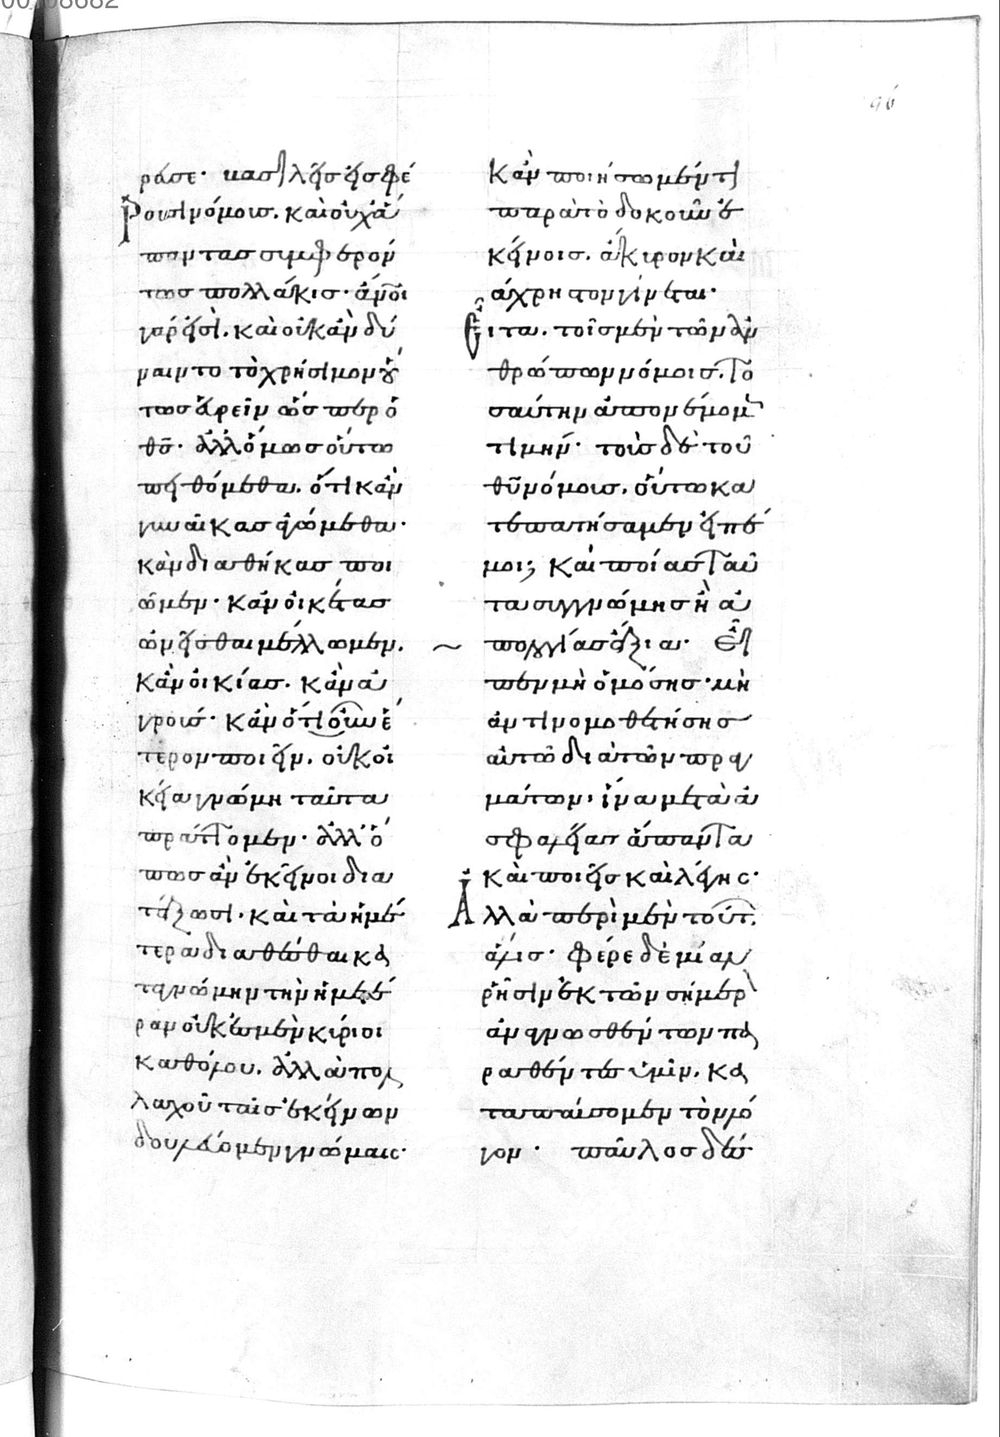 96
ράσε· βασιλεῖς εἰσφέ
ρουσι νόμους. καὶ οὐχ ἅ
παντας συμφερόν
τως πολλάκις· ἄνοι
γάρ εἰσι. καὶ οὐκ ἂν δύ
ναιντο τὸ χρήσιμον οὕ
τως εὑρεῖν ὥσπερ ὁ
θς· ἀλλ' ὅμως οὕτω
πειθόμεθα. ὅτι κἂν
γυναῖκας ἀγώμεθα·
κἂν διαθήκας ποι
ῶμεν· κἂν οἰκέτας
ὠνεῖσθαι μέλλωμεν.
κἂν οἰκίας. κἂν ἀ
γρούς· κἂν ὁτιοῦν ἕ
τερον ποιεῖν. οὐκ οἰ
κεία γνώμη ταῦτα
πράττομεν· ἀλλ' ὅ
πως ἂν ἐκεῖνοι δια
τάξωσι. καὶ τὰ ἡμέ
τερα διαθέσθαι κα
τὰ γνώμην τὴν ἡμετέ
ραν οὐκ ἐσμὲν κύριοι
καθόλου. ἀλλὰ πολ
λαχοῦ ταῖς ἐκείνων
δουλεύομεν γνώμαις·
Κἂν ποιήσωμέν τι
παρὰ τὸ δοκοῦν ἐ
κείνοις. ἄκυρον καὶ
ἄχρηστον γίνεται·
Εἶτα. τοῖς μὲν τῶν ἀν
θρώπων νόμοις. το
σαύτην ἀπονέμομεν
τιμήν· τοὺς δὲ τοῦ
θυ νόμους. οὕτω κα
τεπατήσαμεν εἰπέ
μοι; Καὶ ποίας ταῦ
τα συγγνώμης ἢ ἀ
πολογίας ἄξια· Εἶ
πεν μὴ ὀμόσῃς· μὴ
ἀντινομοθετήσῃς
αὐτῶ διὰ τῶν πρα
γμάτων· ἵνα μετὰ ἀ
σφαλείας ἅπαντα
καὶ ποιῇς καὶ λέγῃς·
Ἀλλὰ περὶ μὲν τούτων
ἅλις· φέρε δὲ μίαν
ῥῆσιν ἐκ τῶν σήμερον
ἀναγνωσθέντων πα
ραθέντες ὑμῖν. κα
ταπαύσομεν τὸν λό
γον· παῦλος δέ